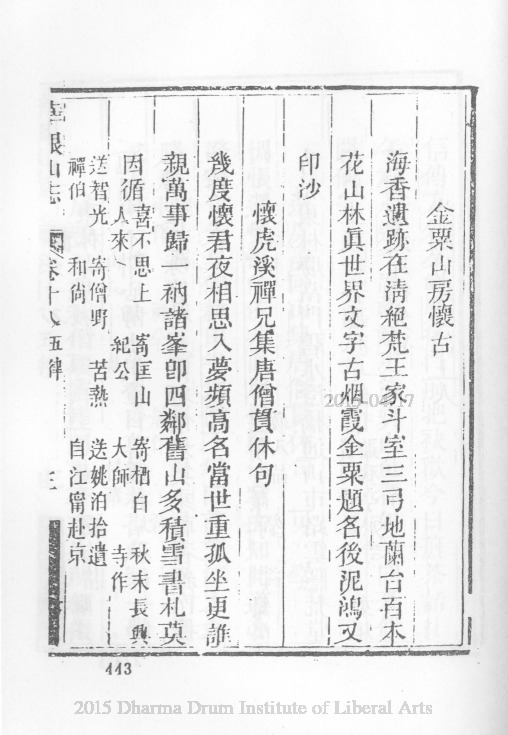 金粟山房懷古
海香遺跡在清絕梵王家斗室三弓地蘭台百本
花山林眞世界文字古烟霞金粟題名後泥鴻又
印沙
懷虎溪禪兄集唐僧貫休句
幾度懷君夜相思入夢頻高名當世重孤坐更誰
親萬事歸一衲諸峯卽四鄰舊山多積雪書札莫
因循 喜不思上 寄匡山 寄栖白 秋末長興
人來 紀公 大師 寺作
送智光 寄僧野 苦熱 送姚洎拾遺
禪伯 和尙 自江甯赴京
山志 卷十八五律 三
443
2015 Dharma Drum Institute of Liberal Arts